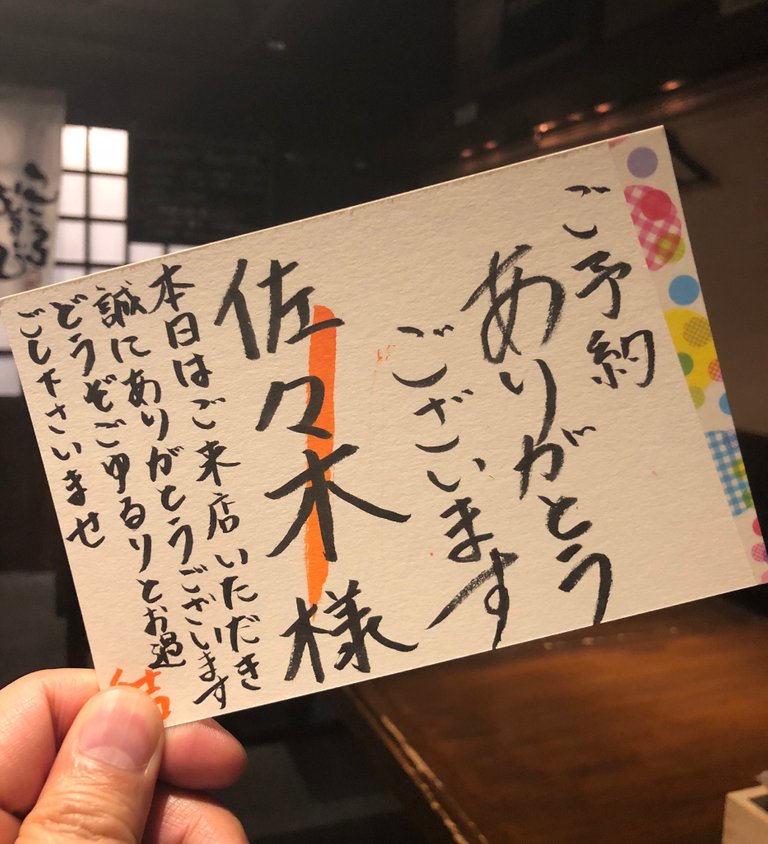 ご予約
ありがとう
ございます
佐々木様
本日はご来店いただき
誠にありがとうございます
どうぞごゆるりとお過
ごし下さいませ
結